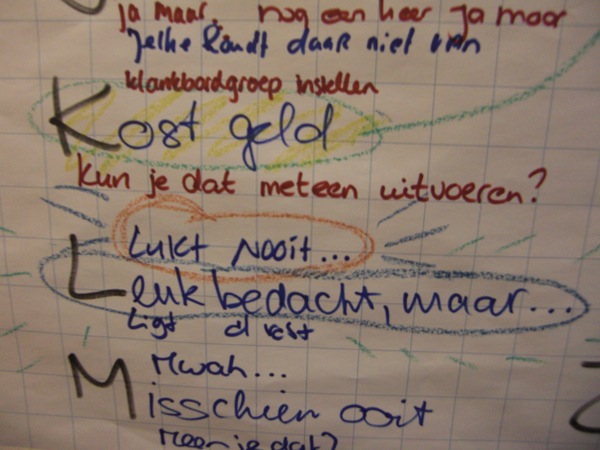 ja maar. nog een keer ja maar
Jelke houdt daar niet van
klankbordgroep instellen
Kost geld
Kun je dat meteen uitvoeren?
Lukt Nooit...
Leuk bedacht, maar...
Ligt d vast
Mwah...
Misschien ooit
Meen je dat?